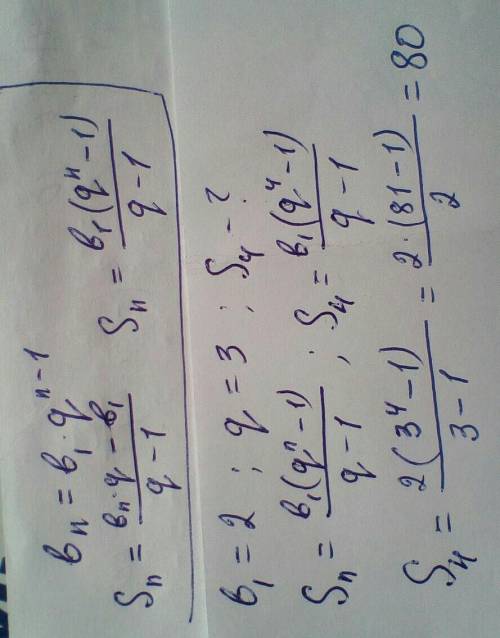 bₙ = b₁·qⁿ⁻¹
Sₙ = (bₙ·q − b₁)/(q − 1)    Sₙ = b₁(qⁿ − 1)/(q − 1)
b₁ = 2 ; q = 3 ; S₄ − ?
Sₙ = b₁(qⁿ − 1)/(q − 1) ; S₄ = b₁(q⁴ − 1)/(q − 1)
S₄ = 2(3⁴ − 1)/(3 − 1) = 2·(81 − 1)/2 = 80